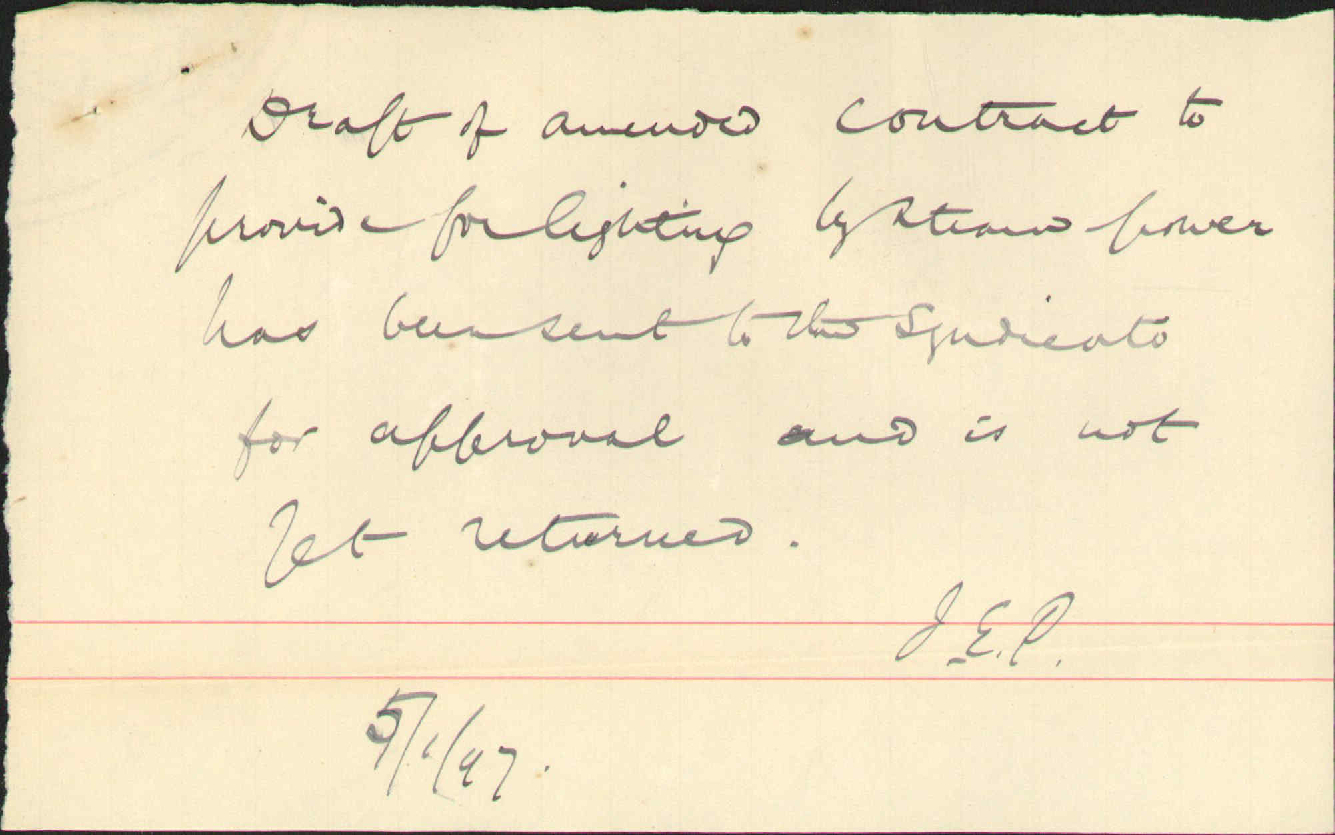 Draft of amended contract to
provide for lighting by steam power
has been sent to the Syndicate
for approval and is not
yet returned.
J.E.P.
5/1/97.